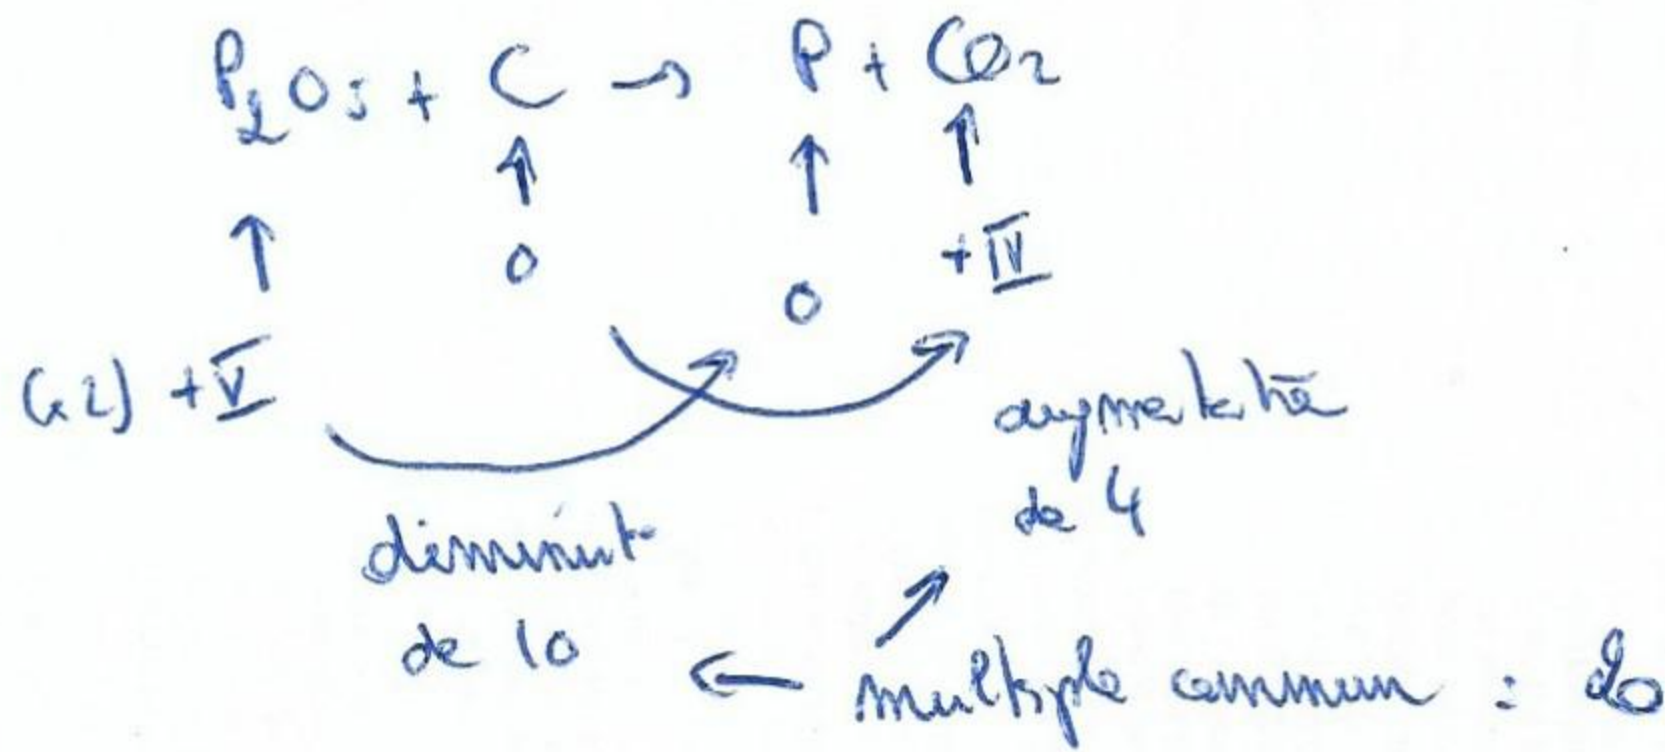 P₂O₅ + C → P + CO₂
↑ ↑ ↑ ↑
0 0 +IV
(x2) +V
augmentatiō
de 4
diminut°
de 10
← multiple commun : 20